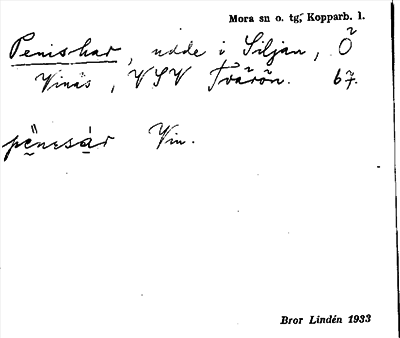 Mora sn o. tg, Kopparb. l.
Penishar, udde i Siljan, Ö
Vinäs, VSV Tvårön. 67.
pënesár Vin.
Bror Lindén 1933